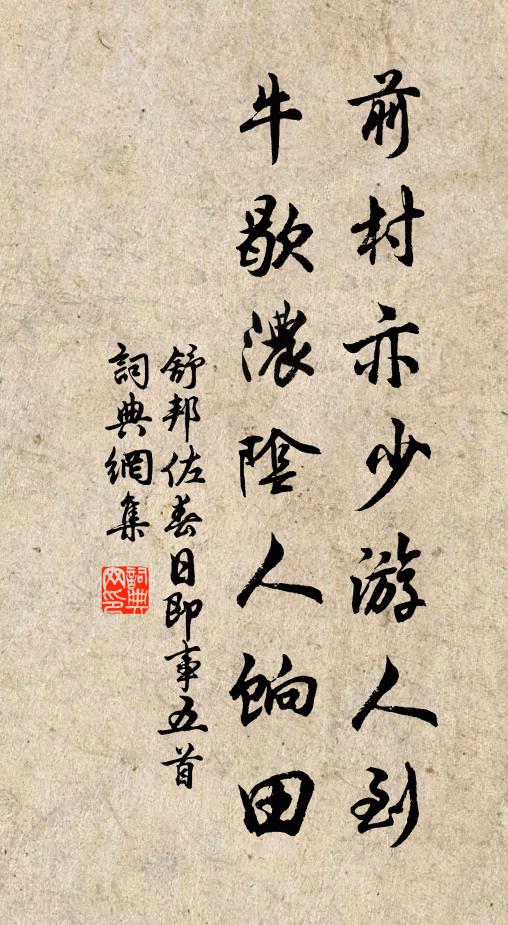 前村亦少游人到
牛歇濃陰人餉田
舒邦佐春日即事五首
詞典網集
詞典網印